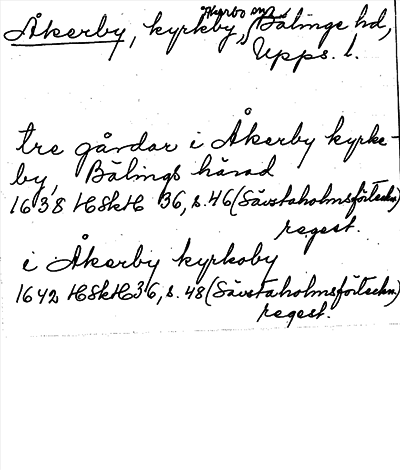 Åkerby, kyrkby, Bälinge hd,
Upps. l.
tre gårdar i Åkerby kyrke-
by, Bälings härad
1638 HSkH 36, s. 46 (Sävstaholmsförteckn)
regest.
i Åkerby kyrkoby
1642 HSkH 36, s. 48 (Sävstaholmsförteckn)
regest.